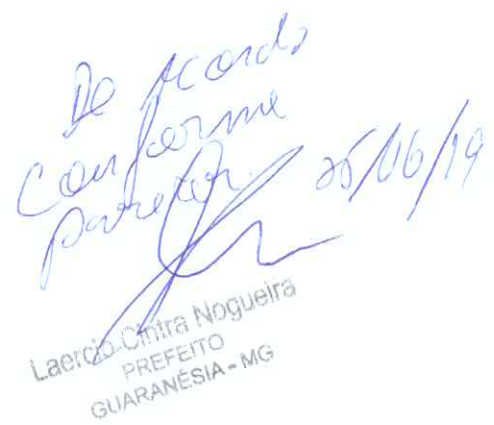 De Acordo
Conforme
parecer. 25/06/19
Laercio Cintra Nogueira
PREFEITO
GUARANÉSIA - MG